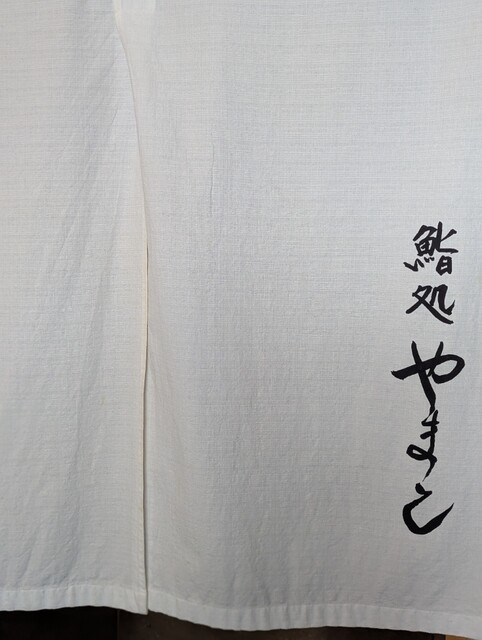 鮨処
やまと